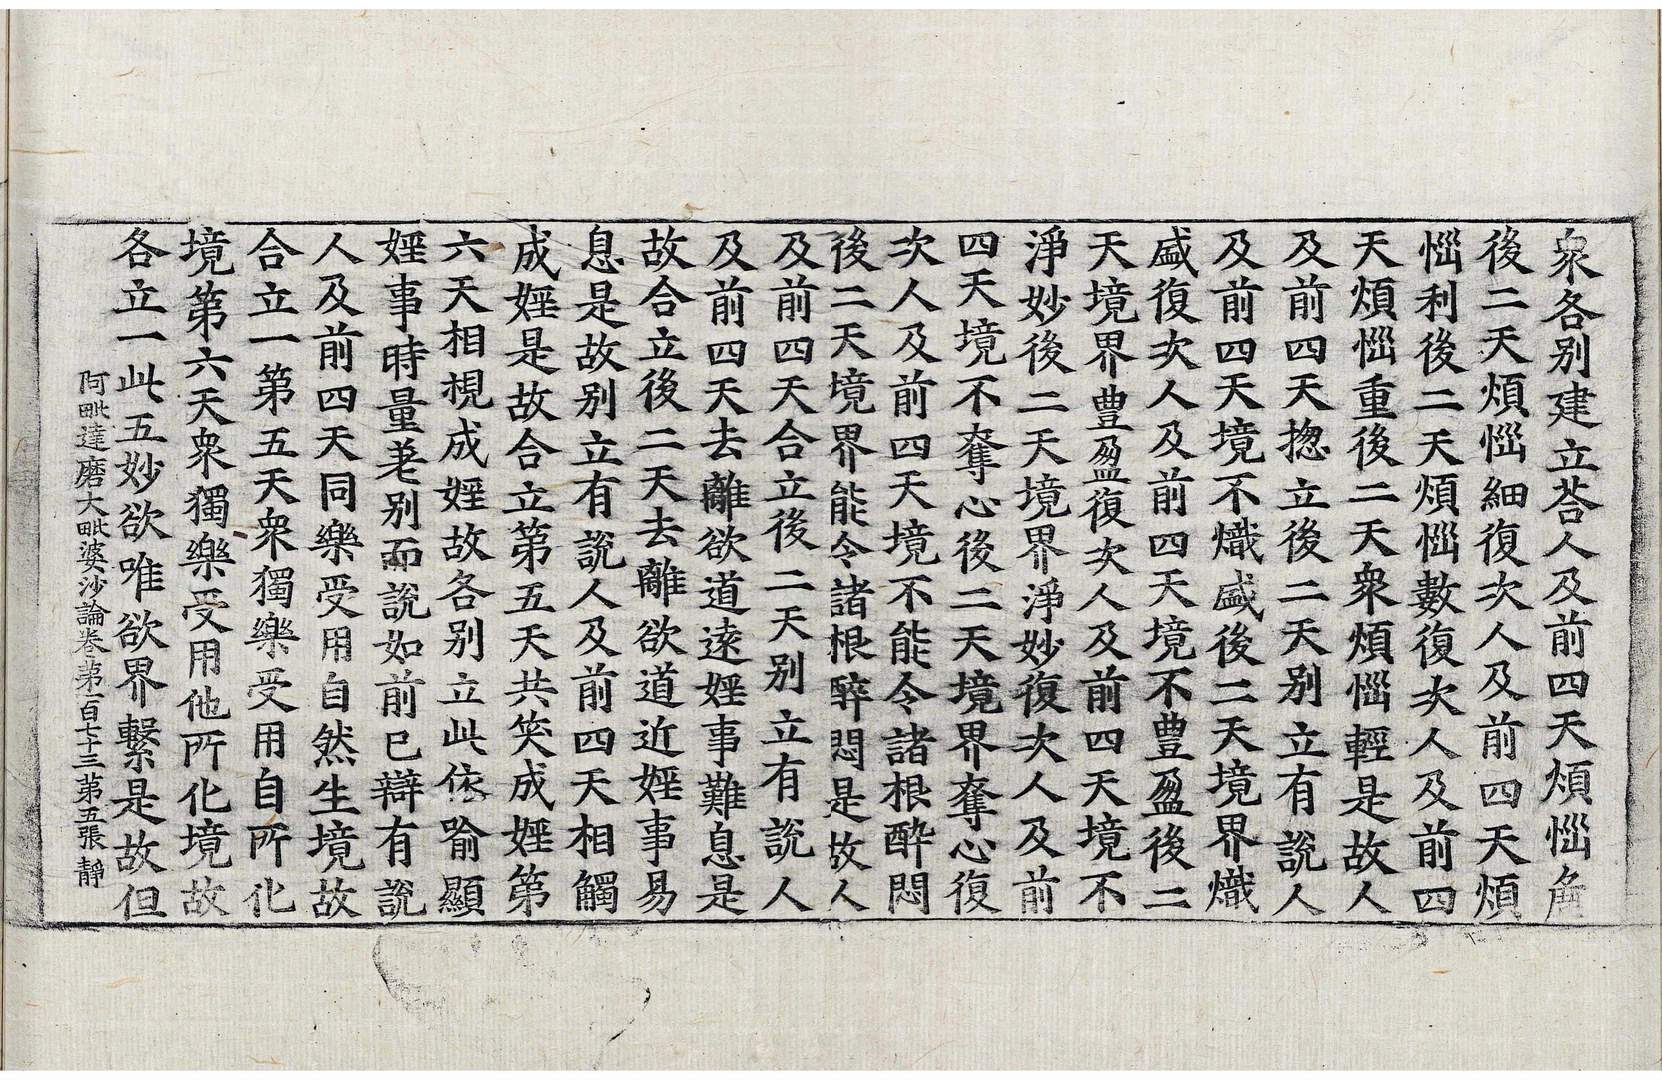 衆各别建立荅人及前四天煩惱麁
後二天煩惱細復次人及前四天煩
惱利後二天煩惱數復次人及前四
天煩惱重後二天衆煩惱輕是故人
及前四天揔立後二天别立有說人
及前四天境不熾盛後二天境界熾
盛復次人及前四天境不豊盈後二
天境界豊盈復次人及前四天境不
淨妙後二天境界淨妙復次人及前
四天境不奪心後二天境界奪心復
次人及前四天境不能令諸根酔悶
後二天境界能令諸根酔悶是故人
及前四天合立後二天别立有說人
及前四天去離欲道遠婬事難息是
故合立後二天去離欲道近婬事易
息是故别立有說人及前四天相觸
成婬是故合立第五天共笑成婬第
六天相視成婬故各别立此依喻顯
婬事時量差别而說如前已辯有說
人及前四天同樂受用自然生境故
合立一第五天衆獨樂受用自所化
境第六天衆獨樂受用他所化境故
各立一此五妙欲唯欲界繫是故但
阿毗達磨大毗婆沙論卷第一百七十三第五張 靜